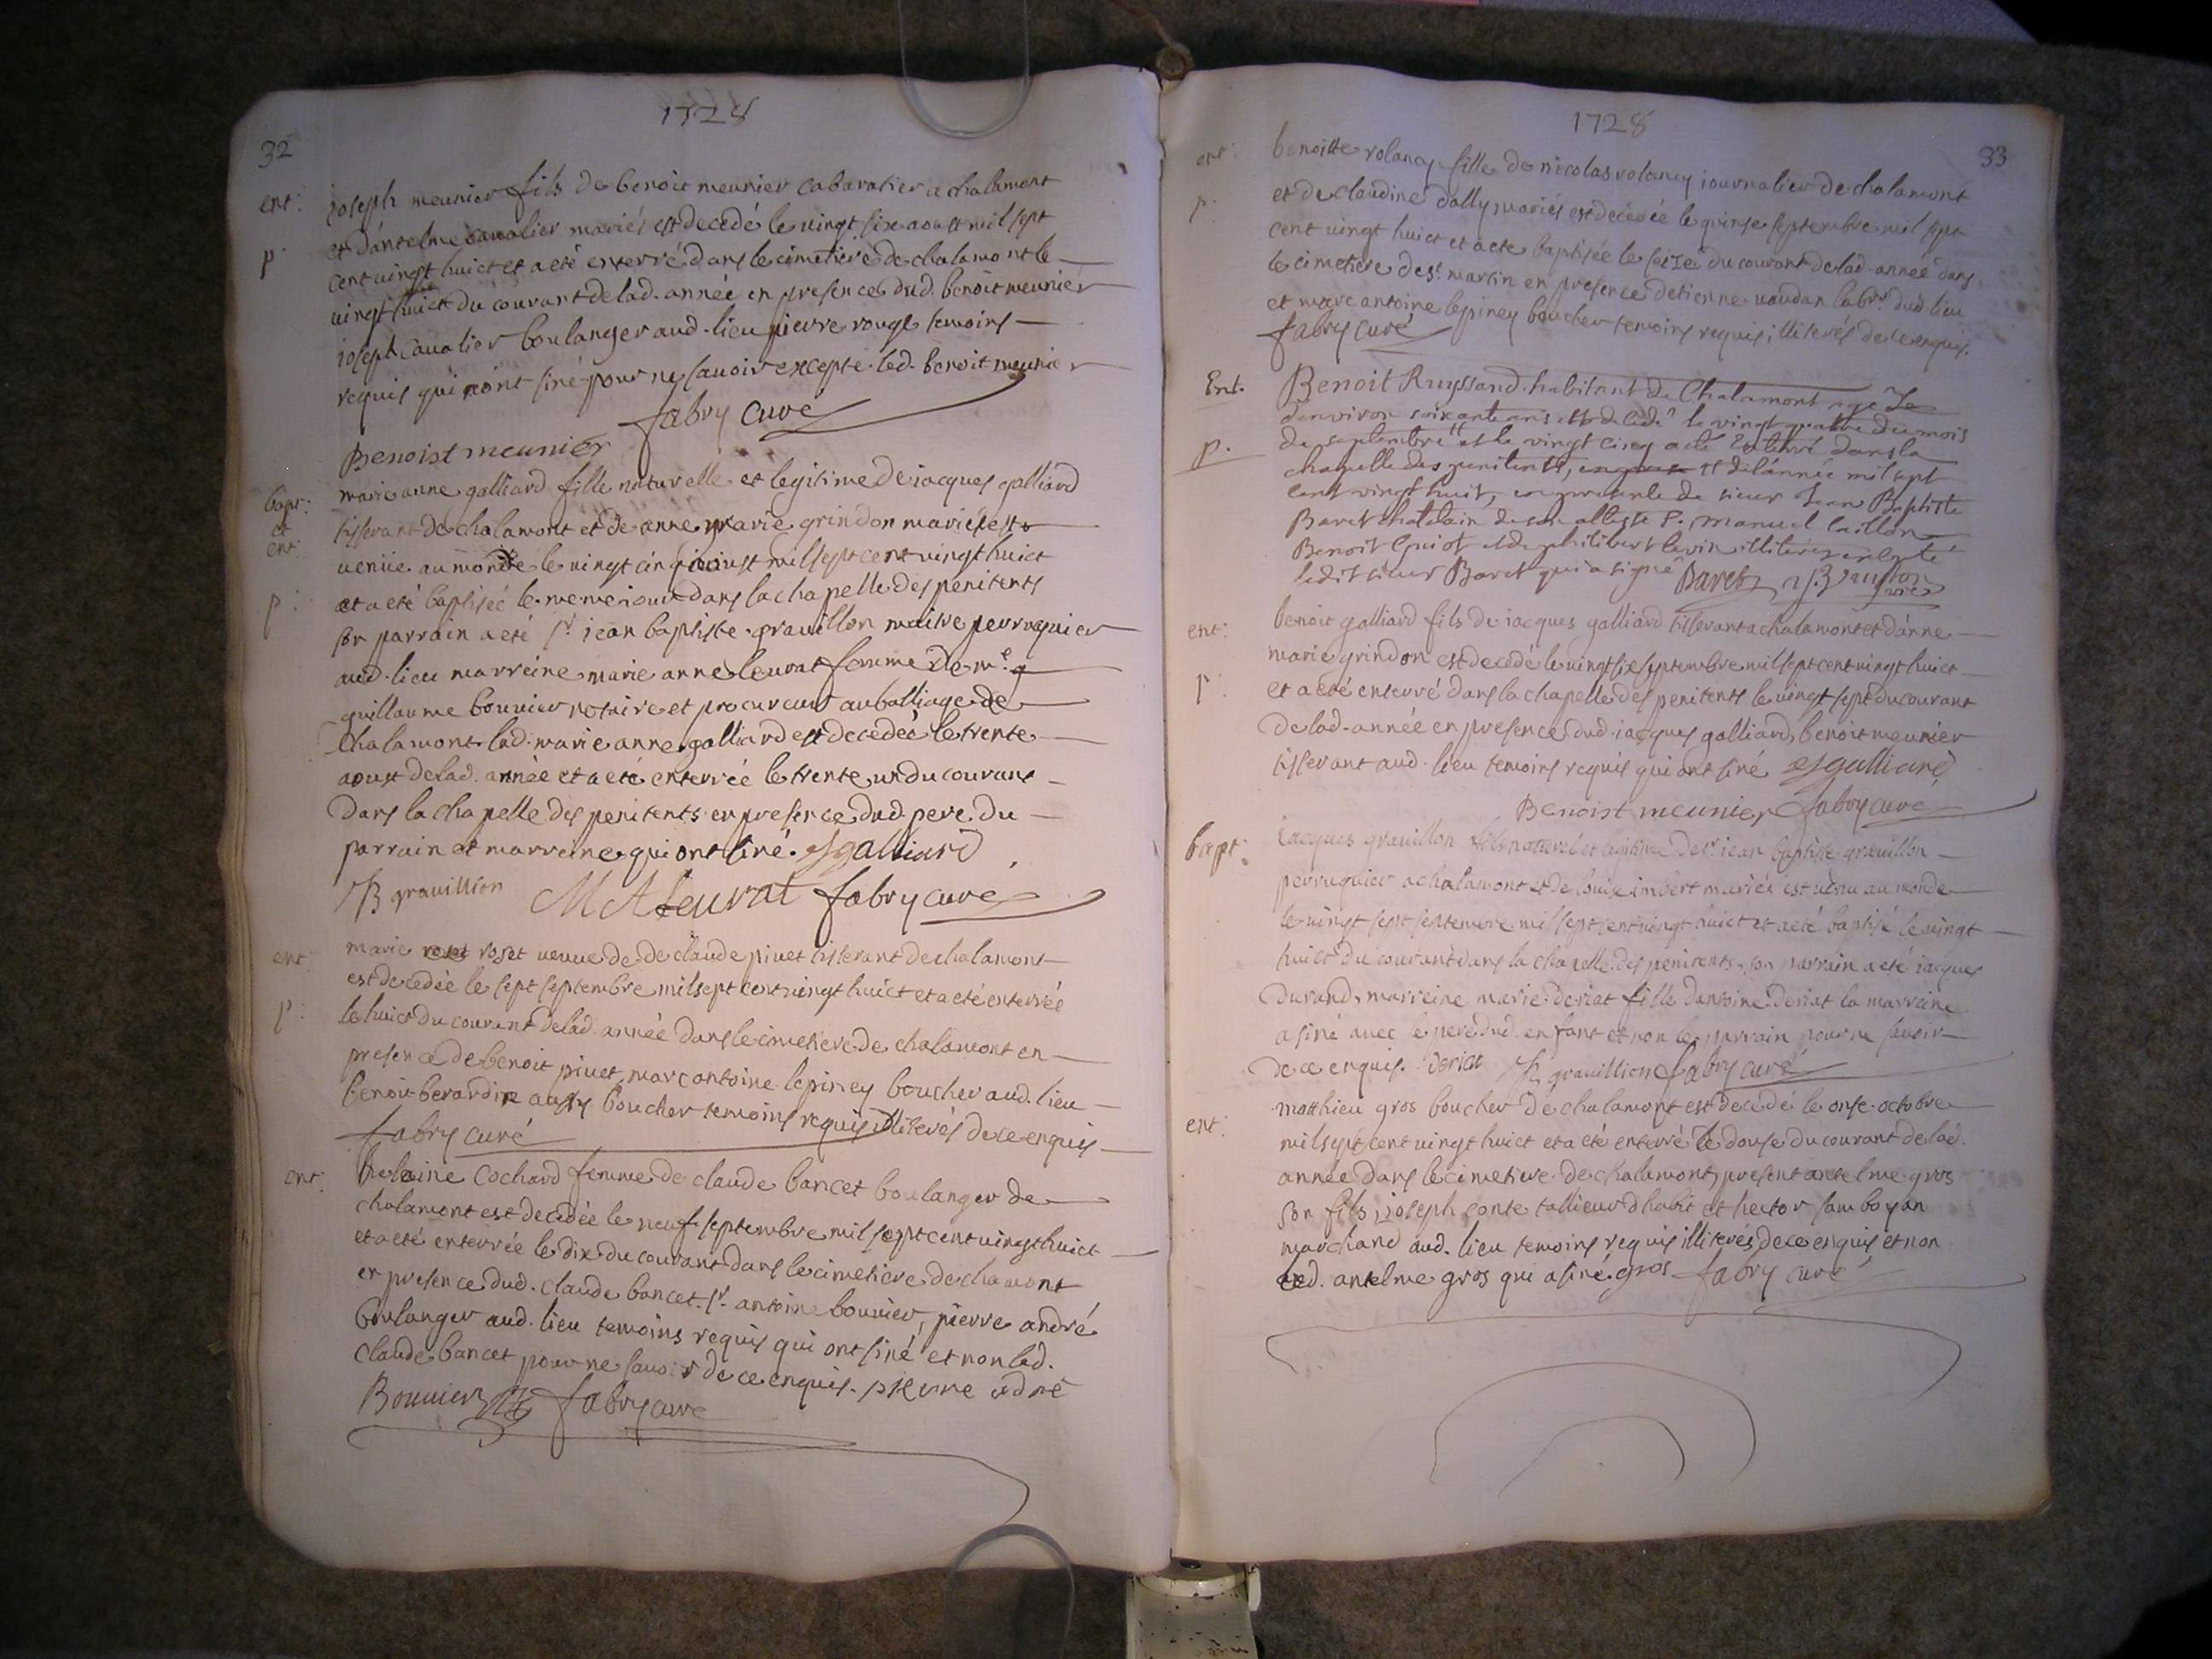 1728
32
ent:
joseph meunier fils de benoit meunier cabaratier a chalamont
p:
et d'antelme cavalier mariés est decedé le vingt six aoust mil sept
cent vingt huict et a eté enterré dans le cimetiere de chalamont le
vingt huict du courant de lad. année en presence dud. benoit meunier
joseph cavalier boulanger aud. lieu pierre rouge temoins
requis qui n'ont siné pour ne savoir excepte led. benoit meunier
fabry curé
Benoist meunier
bapt:
et
ent:
marie anne galliard fille naturelle et legitime de jacques galliard
tisserant de chalamont et de anne marie grindon mariés est
venüe au monde le vingt cinq aoust mil sept cent vingt huict
p:
et a eté baptisée le meme jour dans la chapelle des penitents
son parrain a eté sr. jean baptiste gravillon maitre perruquier
aud. lieu marreine marie anne leurat femme de me.
guillaume bouvier notaire et procureur au balliage de
Chalamont lad. marie anne galliard est decedée le trente
aoust de lad. année et a eté enterrée le trente un du courant
dans la chapelle des penitents en presence dud. pere du
parrain et marreine qui ont siné. galliard
JB gravillion M A Leurat fabry curé
ent:
marie roset veuve de de claude pivet tisserant de chalamont
est decedée le sept septembre mil sept cent vingt huict et a eté enterrée
p:
le huict du courant de lad. année dans le cimetiere de chalamont en
presence de benoit pivet, marc antoine lepiney boucher aud. lieu
benoit berardin aussy boucher temoins requis illiterés de ce enquis
fabry curé
ent:
helaine Cochard femme de claude bancet boulanger de
chalamont est decedée le neuf septembre mil sept cent vingt huict
et a eté enterrée le dix du courant dans le cimetiere de chamont
en presence dud. claude bancet sr. antoine bouvier, pierre andré
boulanger aud. lieu temoins requis qui ont siné et non led.
claude bancet pour ne savoir de ce enquis. pierre adré
Bouvier fabry curé
1728
33
ent:
benoitte volancy fille de nicolas volancy journalier de chalamont
p:
et de claudine dally mariés est decedée le quinse septembre mil sept
cent vingt huict et a eté baptisée le seize du courant de lad. année dans
le cimetiere de st. martin en presence d'etienne vaudan labr. dud. lieu
et marc antoine lepiney boucher temoins requis illiterés de ce enquis.
fabry curé
Ent.
Benoit Ruyssand habitant de Chalamont agé
d'environ soixante ans est decedé le vingt quattre du mois
p.
de septembre et le vingt cinq a eté enterré dans la
chapelle des penitents, de l'année mil sept
cent vingt huit, en presence de sieur Jean Baptiste
Baret chatelain de son altesse S. Manuel
Benoit Guiot et de philibert illiterés excepté
ledit sieur Baret qui a signé Baret
ent:
benoit galliard fils de jacques galliard tisserant a chalamont et d'anne
marie grindon est decedé le vingt six septembre mil sept cent vingt huict
p:
et a eté enterré dans la chapelle des penitents le vingt sept du courant
de lad. année en presence dud. jacques galliard, benoit meunier
tisserant aud. lieu temoins requis qui ont siné galliard
Benoist meunier fabry curé
bapt:
Jacques gravillon fils naturel et legitime de sr. jean baptiste gravillon
perruquier a chalamont et de louise imbert mariés est venu au monde
le vingt sept septembre mil sept cent vingt huict et a eté baptisé le vingt
huict du courant dans la chapelle des penitents, son parrain a eté jacques
Durand, marreine marie deriat fille d'antoine deriat la marreine
a siné avec le pere dud. enfant et non le parrain pour ne savoir
de ce enquis. deriat JB gravillion fabry curé
ent:
matthieu gros boucher de chalamont est decedé le onse octobre
mil sept cent vingt huict et a eté enterré le douse du courant de lad.
année dans le cimetiere de chalamont, present antelme gros
son fils, joseph conte tallieur d'habit et hector samboyan
marchand aud. lieu temoins requis illiterés de ce enquis et non
led. antelme gros qui a siné. gros fabry curé